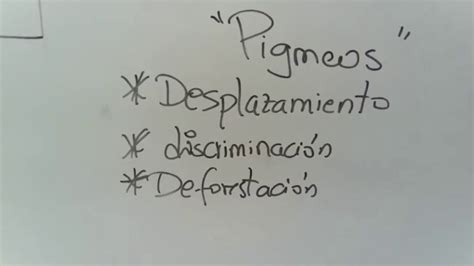 "Pigmeos"
* Desplazamiento
* discriminación
* Deforestación